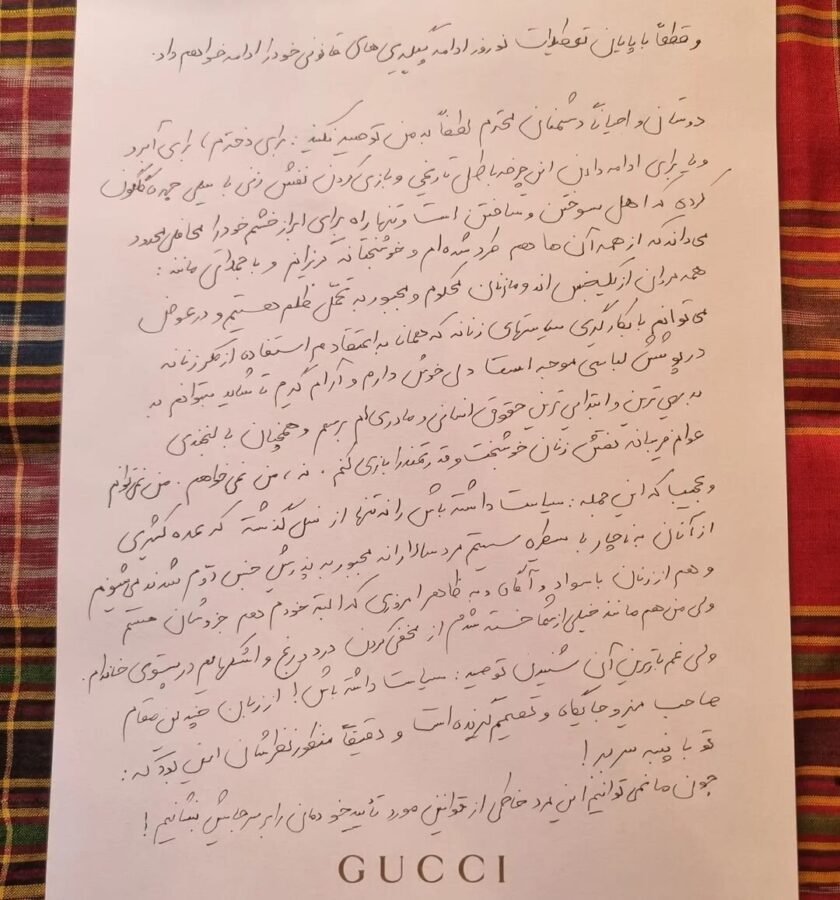 و قطعاً با پایان تعطیلات نوروز ادامه پیگیری‌های قانونی خود را ادامه خواهم داد.
دوستان و احیاناً دشمنان محترم لطفاً به من توصیه نکنید: برای دخترم، برای آبرو
و یا برای ادامه دادن این چرخه باطل تاریخی و بازی کردن نقش زنی با سیلی چهره گلگون
کرده که اهل سوختن و ساختن است و تنها راه برای ابراز خشم خود را محافل محدود
می‌داند که از همه آن ها هم طرد شده‌ام و خوشبختانه گریزانم و با جملاتی مانند:
همه مردان از یک جنس اند و ما زنان محکوم و مجبور به تحمّل ظلم هستیم و در عوض
می‌توانم با بکارگیری سیاستهای زنانه که همانا به اعتقادم استفاده از مکر زنانه
در پوشش لباسی موجه است دل خوش دارم و آرام گیرم تا شاید بتوانم به
بدیهی ترین و ابتدایی ترین حقوق انسانی و مادری‌ام برسم و همچنان با لبخندی
عوام فریبانه نقش زنان خوشبخت و قدرتمند را بازی کنم. نه، من نمی‌خواهم. من نمی‌توانم
و عجیب که این جمله: سیاست داشته باش را نه تنها از نسل گذشته که عده کثیری
از آنان به ناچار با سیطره سیستم مردسالارانه مجبور به پذیرش جنس دوّم شدند می‌شنوم
و هم از زنان باسواد و آگاه و به ظاهر امروزی که البته خودم هم جزوشان هستم
ولی من هم مانند خیلی از شما خسته شدم از مخفی کردن درد دروغ و اشکهایم در پستوی خانه‌ام.
ولی غم بارترین آن شنیدن توصیه: سیاست داشته باش! از زبان چندین مقام
صاحب میز و جایگاه و تصمیم گیرنده است و دقیقاً منظور نظرشان این بود که:
تو با پنبه سر ببر!
چون ما نمی توانیم این مرد خاطی از قوانین مورد تأیید خودمان را بر سر جایش بنشانیم!
GUCCI